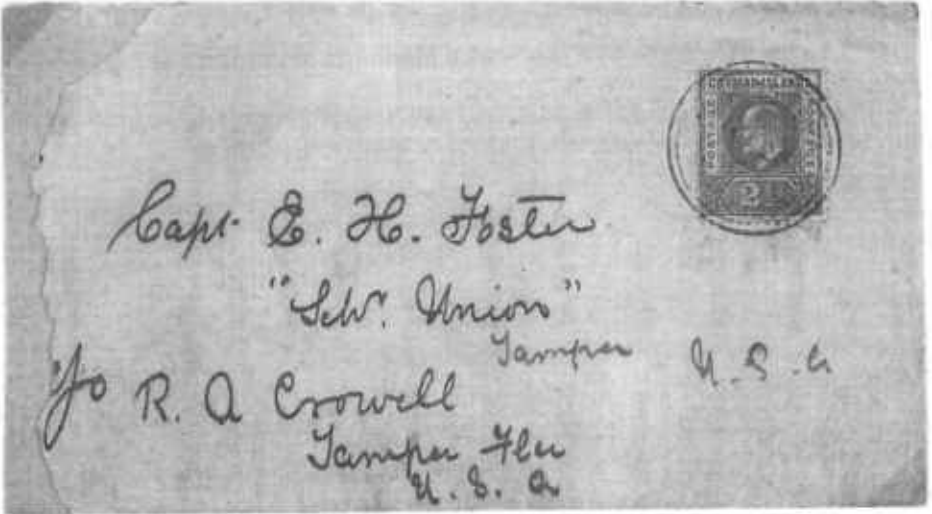 CAYMAN ISLANDS
POSTAGE
REVENUE
2
Capt. E. H. Foster
"Schr. Union"
Tampa U.S.A
c/o R. A Crowell
Tampa Fla
U.S.A